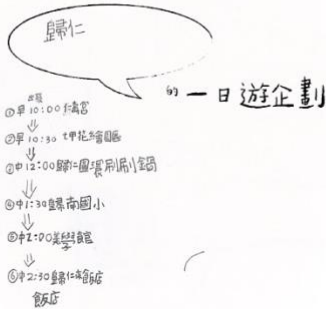 歸仁
的一日遊企劃
出發
①早10:00仁壽宮
②早10:30 七甲花繪園區
③中12:00歸仁圓環刷刷鍋
④中1:30歸南國小
⑤中2:00美學館
⑥中2:30歸仁 飯店
飯店